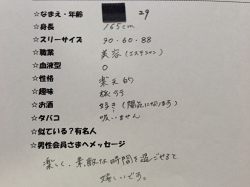 ☆なまえ・年齢 29
☆身長 165cm
☆スリーサイズ 90-60-88
☆職業 美容(エステティシャン)
☆血液型 O
☆性格 楽天的
☆趣味
☆お酒 好き!(陽気になります)
☆タバコ 吸いません
☆似ている?有名人
☆男性会員さまへメッセージ
楽しく、素敵な時間を過ごせると
嬉しいです。